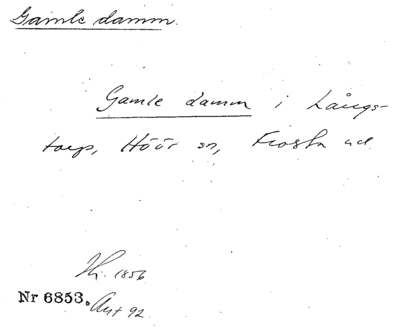 Gamle damm.
Gamle damm i Långs-
torp, Höör sn, Frosta hd.
1856
Nr 6853. Avst 92